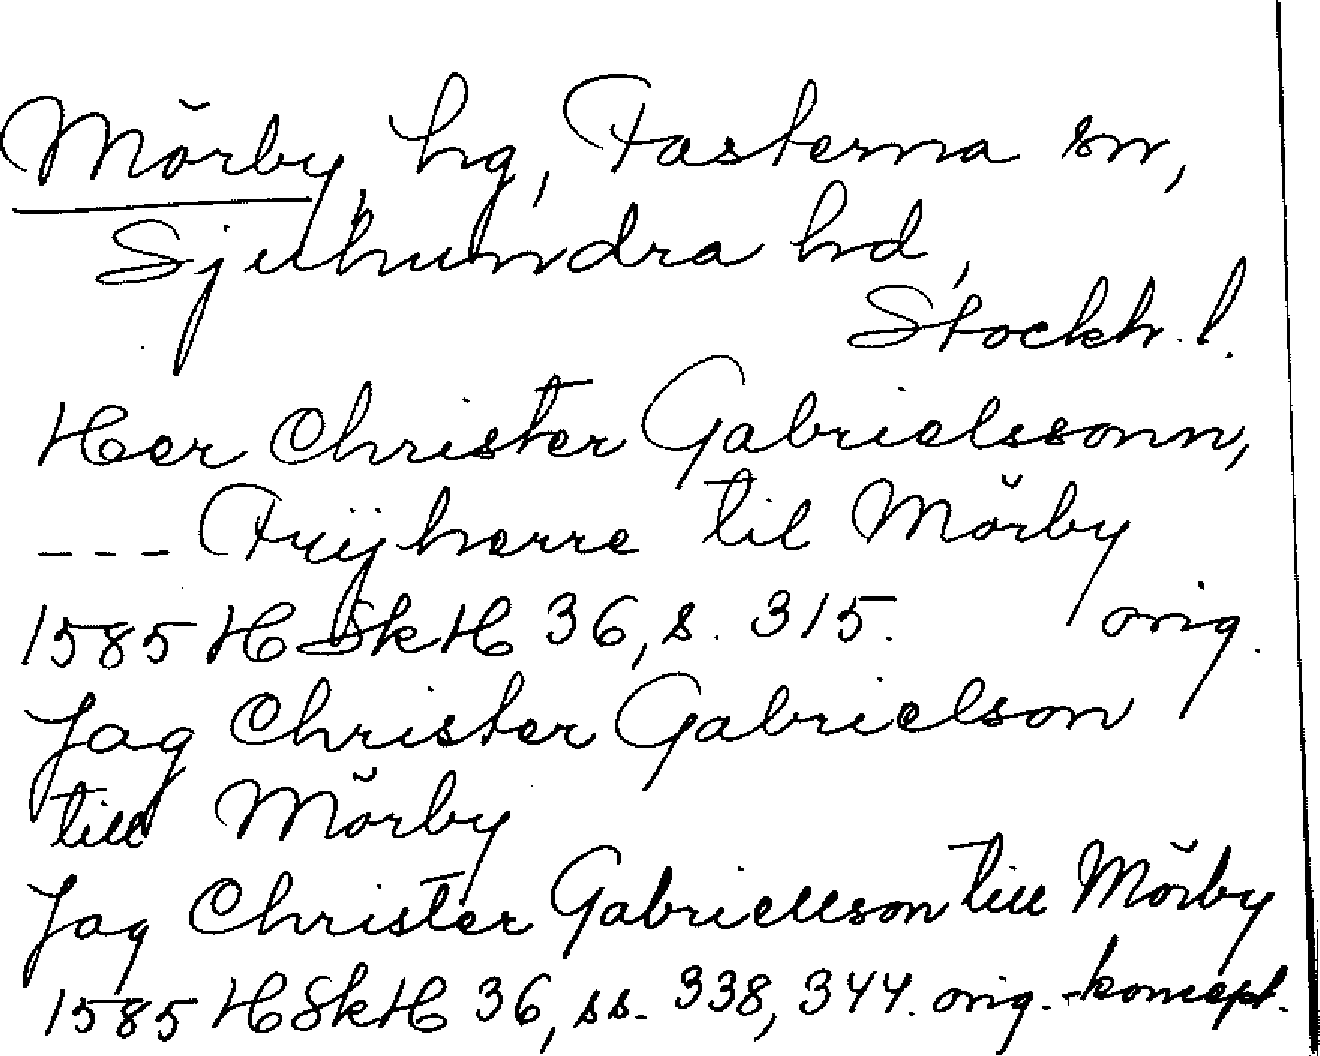 Mörby, hg, Fasterna sn,
Sjuhundra hd,
Stockh. l.
Her Christer Gabrielssonn,
--- Frijherre til Mörby
1585 HSkH 36, s. 315. orig.
Jag Christer Gabrielson
till Mörby
Jag Christer Gabriellson till Mörby
1585 HSkH 36, ss. 338, 344. orig.-koncept.